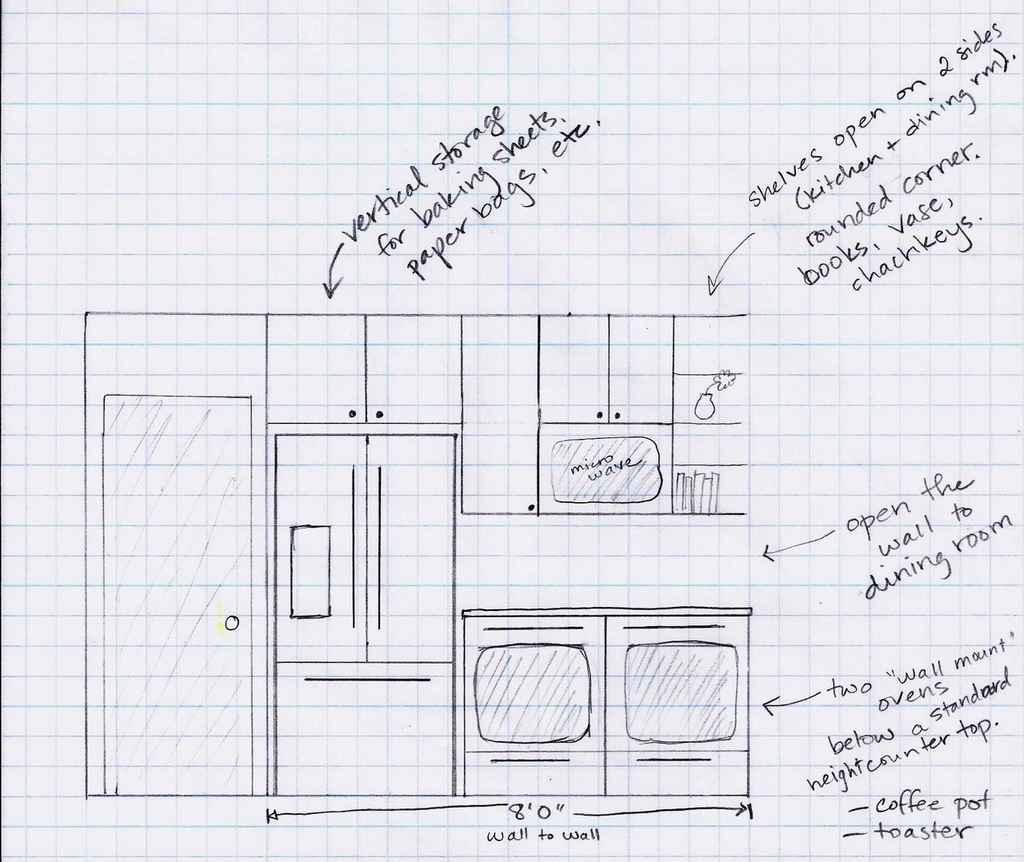 vertical storage
for baking sheets,
paper bags, etc.
shelves open on 2 sides
(kitchen + dining rm).
rounded corner.
books, vase,
chachkeys.
micro
wave
open the
wall to
dining room
two "wall mount"
ovens
below a standard
height counter top.
- coffee pot
- toaster
8'0"
wall to wall